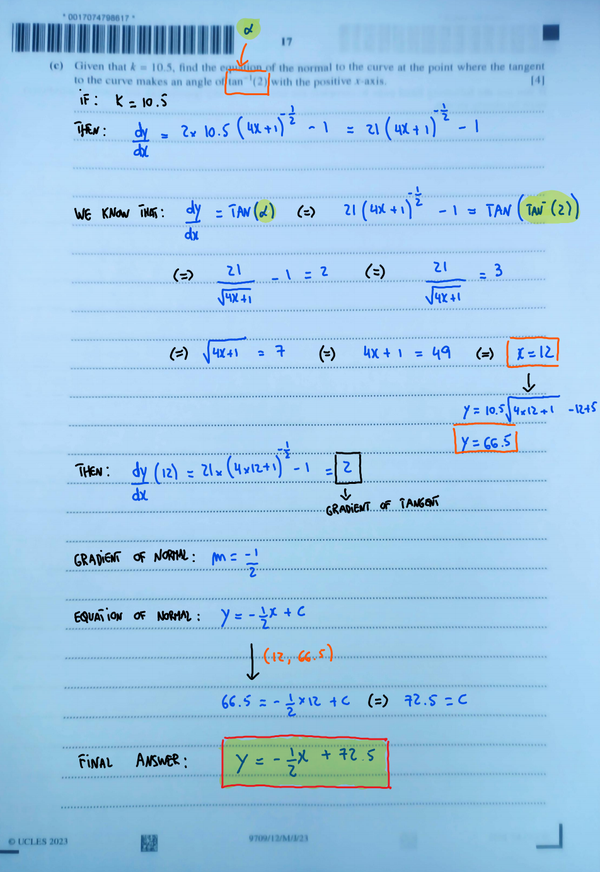 * 0017074798817 *
α
17
(c) Given that k = 10.5, find the equation of the normal to the curve at the point where the tangent
to the curve makes an angle of tan⁻¹(2) with the positive x-axis. [4]
IF: K = 10.5
THEN: dy/dx = 2 × 10.5 (4x+1)^(-1/2) - 1 = 21 (4x+1)^(-1/2) - 1
WE KNOW THAT: dy/dx = TAN(α) (=) 21(4x+1)^(-1/2) - 1 = TAN(TAN⁻(2))
(=) 21/√(4x+1) - 1 = 2 (=) 21/√(4x+1) = 3
(=) √(4x+1) = 7 (=) 4x + 1 = 49 (=) x = 12
y = 10.5√(4×12+1) -12+5
y = 66.5
THEN: dy/dx (12) = 21×(4×12+1)^(-1/2) - 1 = 2
GRADIENT OF TANGENT
GRADIENT OF NORMAL: m = -1/2
EQUATION OF NORMAL: y = -1/2 x + c
(12, 66.5)
66.5 = -1/2 × 12 + c (=) 72.5 = c
FINAL ANSWER: y = -1/2 x + 72.5
© UCLES 2023 9709/12/M/J/23